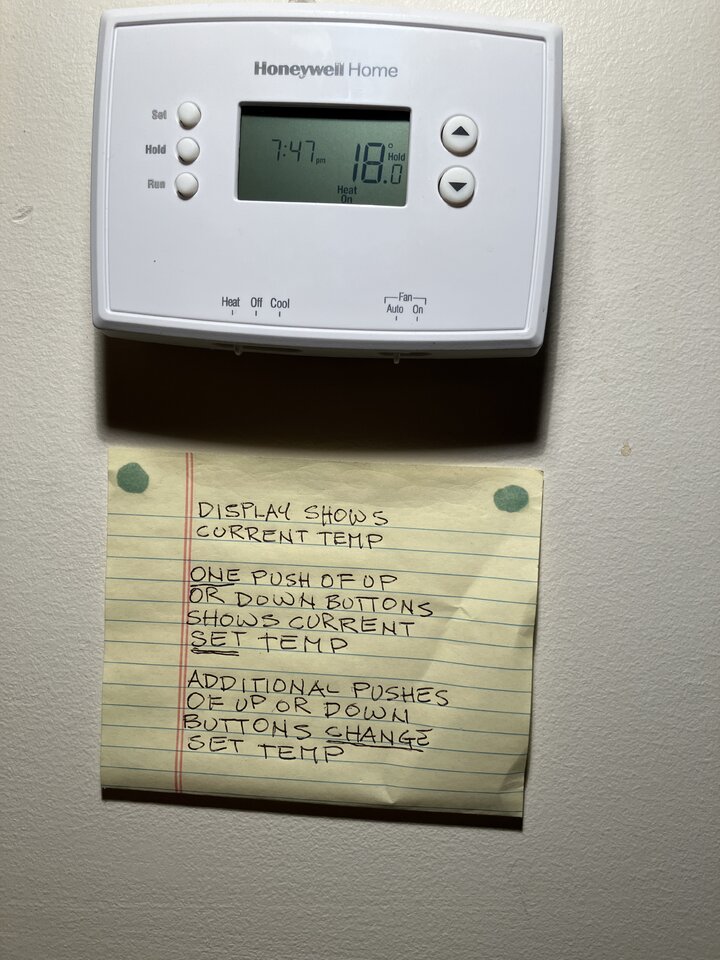 Honeywell Home
Set
Hold
Run
7:47 pm 18.0° Hold
Heat
On
Heat Off Cool
Fan
Auto On
DISPLAY SHOWS
CURRENT TEMP
ONE PUSH OF UP
OR DOWN BUTTONS
SHOWS CURRENT
SET TEMP
ADDITIONAL PUSHES
OF UP OR DOWN
BUTTONS CHANGE
SET TEMP